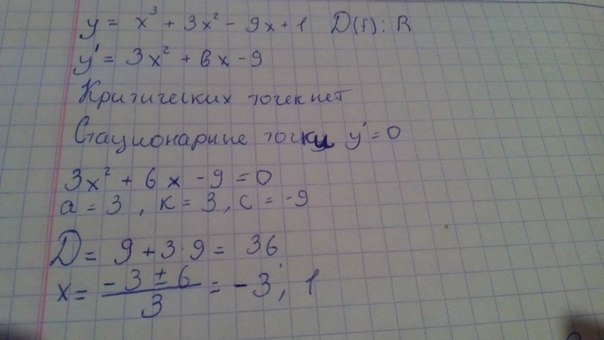 y = x³ + 3x² - 9x + 1 D(f): R
y' = 3x² + 6x - 9
Критических точек нет
Стационарные точки y' = 0
3x² + 6x - 9 = 0
a = 3, к = 3, c = -9
D = 9 + 3·9 = 36
x = (-3 ± 6)/3 = -3; 1